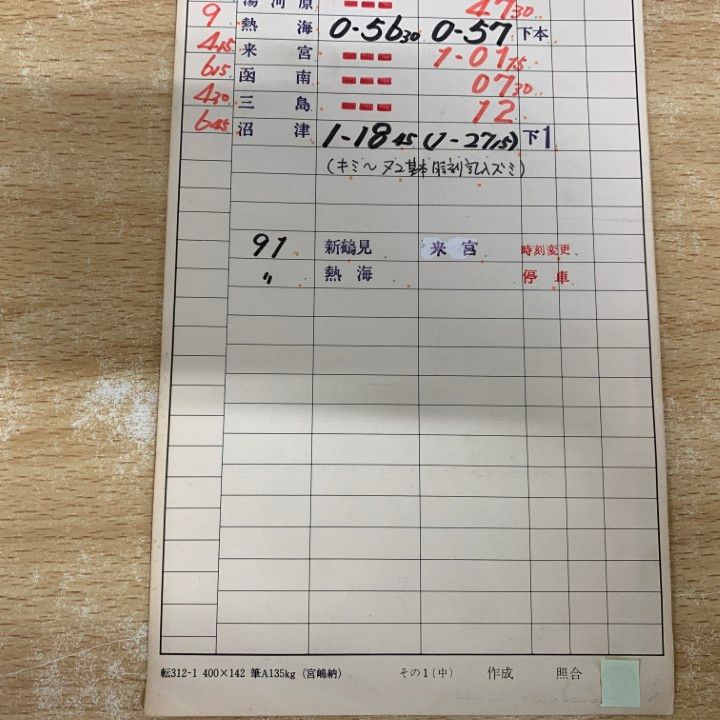 湯河原 47 30
9
熱海 0-56 30 0-57 下本
4 15
来宮 1-01 15
6 15
函南 07 30
4 30
三島 12
6 45
沼津 1-18 45 (1-27 15) 下1
91 新鶴見 来宮 時刻変更
〃 熱海 停車
転312-1 400×142 筆A135kg (宮嶋納) その1(中) 作成 照合